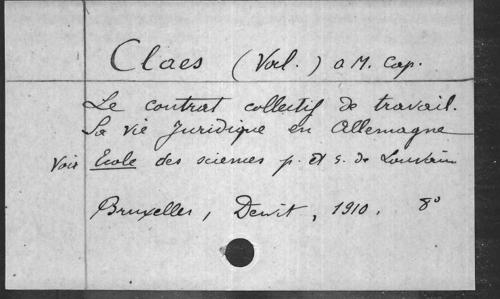 Claes (Val.) O M. Cap.
Le contrat collectif de travail.
Sa vie Juridique en Allemagne
Voir Ecole des sciences p. et s. de Louvain
Bruxelles, Dewit, 1910. 8°